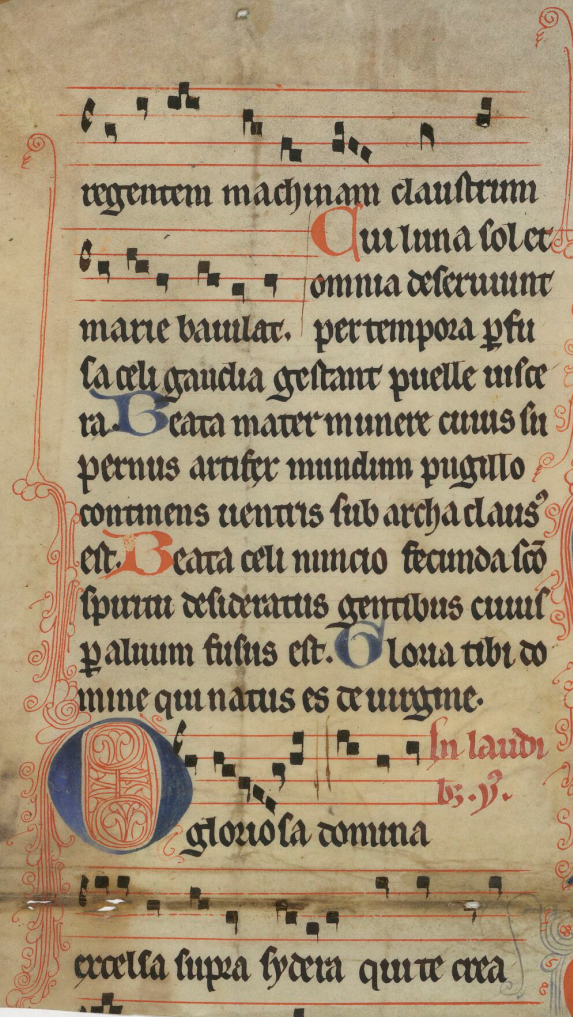 regentem machinam claustrum
Cui luna sol et
omnia deseruiunt
marie baiulat. per tempora ꝑfu
sa celi gaudia gestant puelle uisce
ra. Beata mater munere cuius su
pernus artifex mundum pugillo
continens uentris sub archa clausꝰ
est. Beata celi nuncio fecunda sc̄o
spiritu desideratus gentibus cuius
ꝑ aluum fusus est. Gloria tibi do
mine qui natus es de uirgine.
In laudi
bꝫ. ymꝰ.
O gloriosa domina
excelsa supra sydera qui te crea